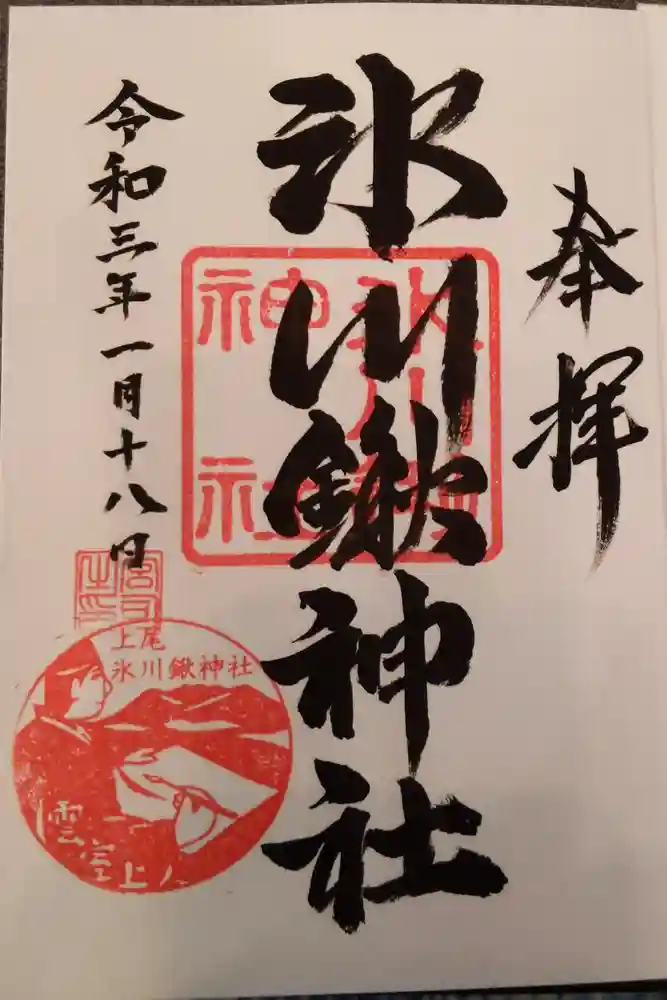 奉拝
氷川鍬神社
令和三年一月十八日
氷川鍬神社
宮司之印
上尾
氷川鍬神社
雲室上人